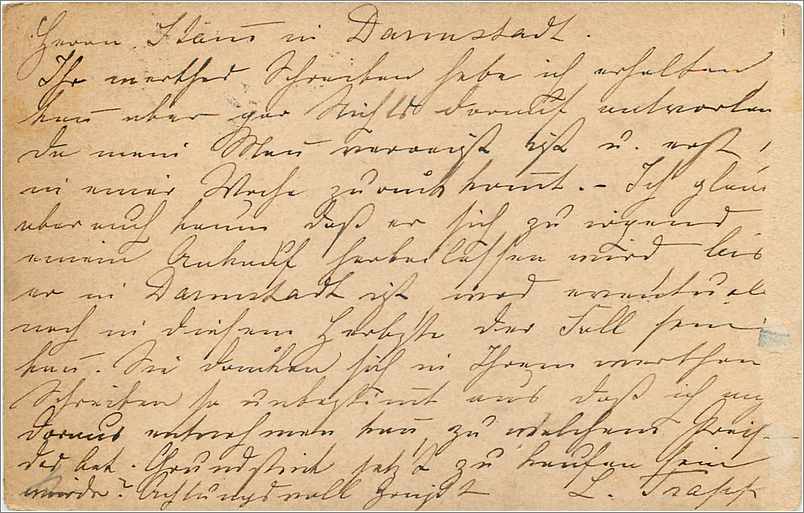 Herrn Kraus in Darmstadt.
Ihr werthes Schreiben habe ich erhalten
kann aber gar Nichts darauf antworten
da mein Mann verreist ist u. erst
in einer Woche zurück kommt. – Ich glaube
aber auch kaum daß er sich zu irgend
einem Ankauf herbeilassen wird bis
er in Darmstadt ist was eventuel
noch in diesem Herbste der Fall sein
kann. Sie drücken sich in Ihrem werthen
Schreiben so unbestimmt aus daß ich nicht
daraus entnehmen kann, zu welchem Preis
das bet. Grundstück jetzt zu kaufen sein
würde? Achtungsvoll zeigt L. Trapp